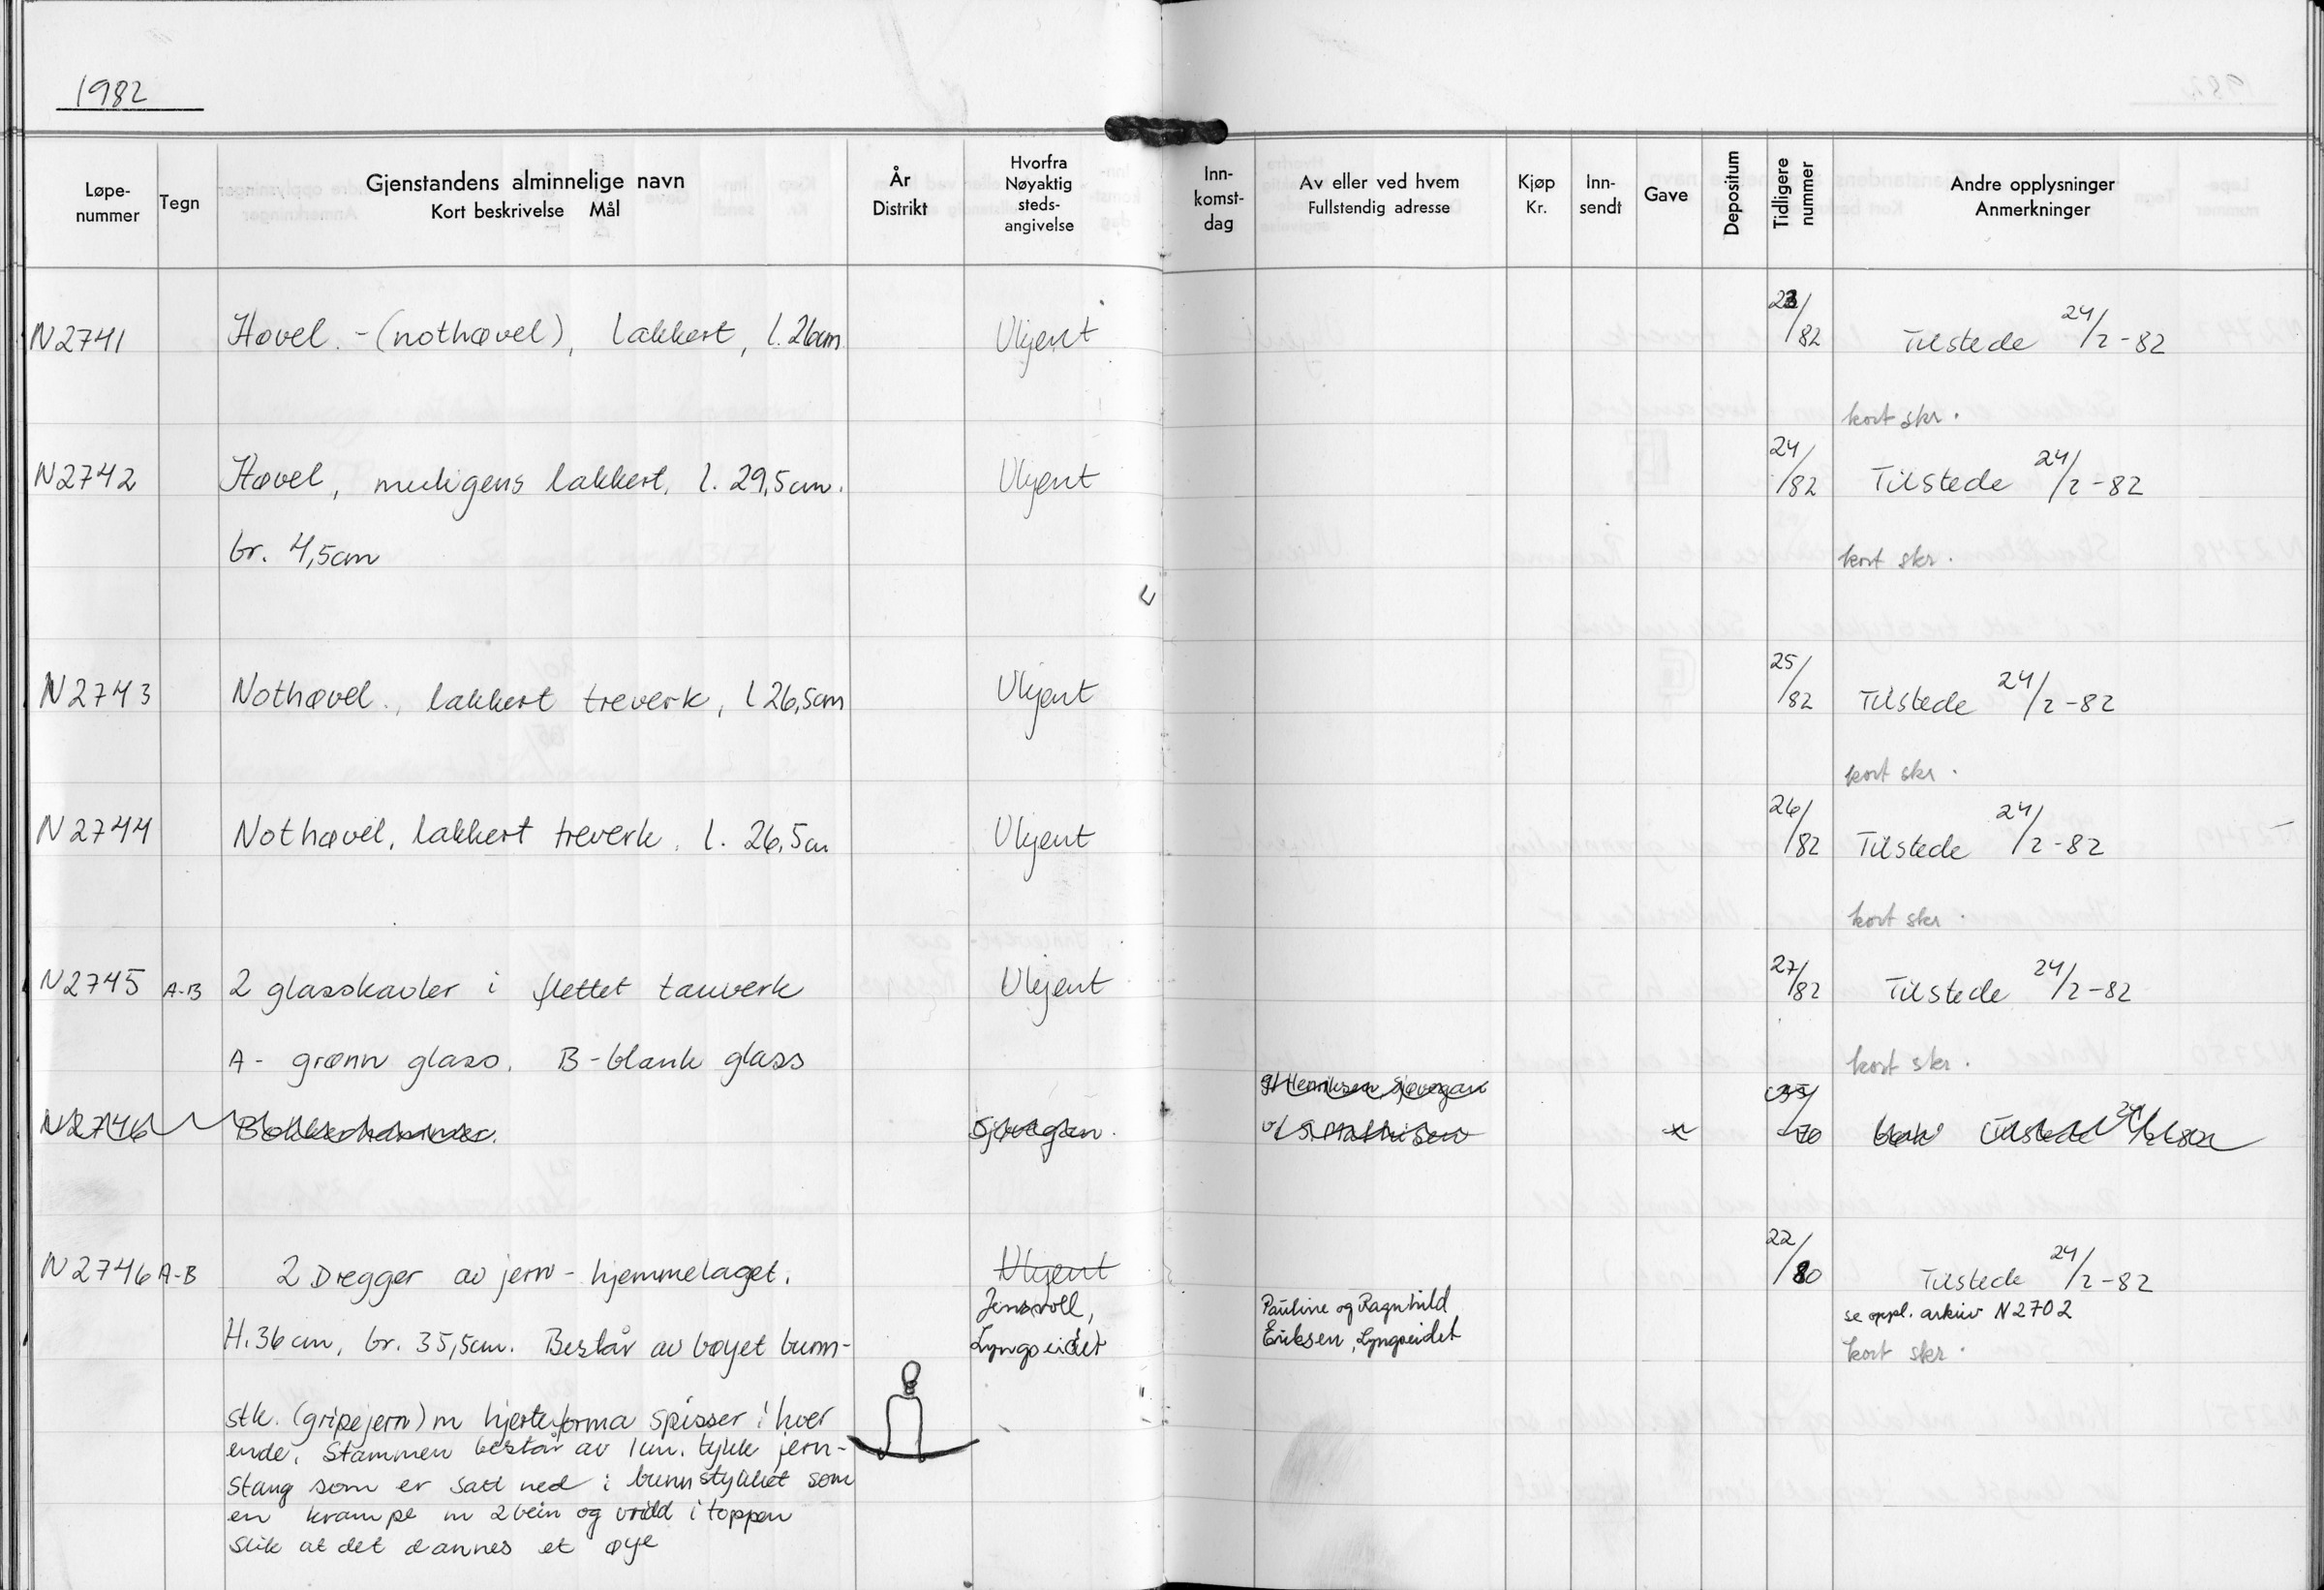 1982
Løpe-
nummer
Tegn
Gjenstandens alminnelige navn
Kort beskrivelse Mål
År
Distrikt
Hvorfra
Nøyaktig
steds-
angivelse
Inn-
komst-
dag
Av eller ved hvem
Fullstendig adresse
Kjøp
Kr.
Inn-
sendt
Gave
Depositum
Tidligere
nummer
Andre opplysninger
Anmerkninger
N2741 Høvel. - (nothøvel), lakkert, l. 26cm. Ukjent 23/82 Tilstede 24/2-82
kort skr.
N2742 Høvel, muligens lakkert, l. 29,5cm. Ukjent 24/82 Tilstede 24/2-82
br. 4,5cm kort skr.
N2743 Nothøvel., lakkert treverk, l 26,5cm Ukjent 25/82 Tilstede 24/2-82
kort skr.
N2744 Nothøvel, lakkert treverk. l. 26,5cm Ukjent 26/82 Tilstede 24/2-82
kort skr.
N2745 A-B 2 glasskavler i flettet tauverk Ukjent 27/82 Tilstede 24/2-82
A- grønn glass. B-blank glass kort skr.
Henriksen, Sjøvegan
N2746 Sjøvegan. v/ S. Mathisen x 70 Tilstede
N2746 A-B 2 Dregger av jern - hjemmelaget. Ukjent 22/80 Tilstede 24/2-82
Jensvoll, Pauline og Ragnhild se oppl. arkiv N2702
H. 36cm, br. 35,5cm. Består av bøyet bunn- Lyngseidet Eriksen, Lyngseidet kort skr.
stk. (gripejern) m hjerteforma spisser i hver
ende. Stammen består av 1cm. tykk jern-
stang som er satt ned i bunnstykket som
en krampe m 2 bein og vridd i toppen
slik at det dannes et øye